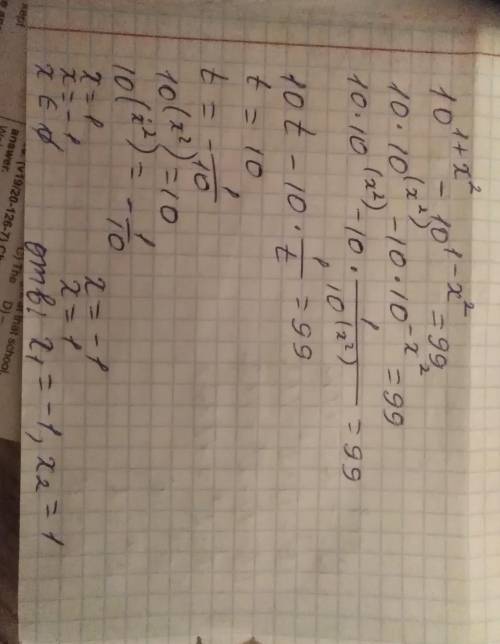 10^{1+x^2} - 10^{1-x^2} = 99
10·10^{(x^2)} - 10·10^{-x^2} = 99
10·10^{(x^2)} - 10·\frac{1}{10^{(x^2)}} = 99
10t - 10·\frac{1}{t} = 99
t = 10
t = -\frac{1}{10}
10^{(x^2)} = 10
10^{(x^2)} = -\frac{1}{10}
x = 1 x = -1
x = -1 x = 1
x ∈ ∅
отв: x_1 = -1, x_2 = 1
(V19/20-126-7)
answer.
that school.
C) The
D) –